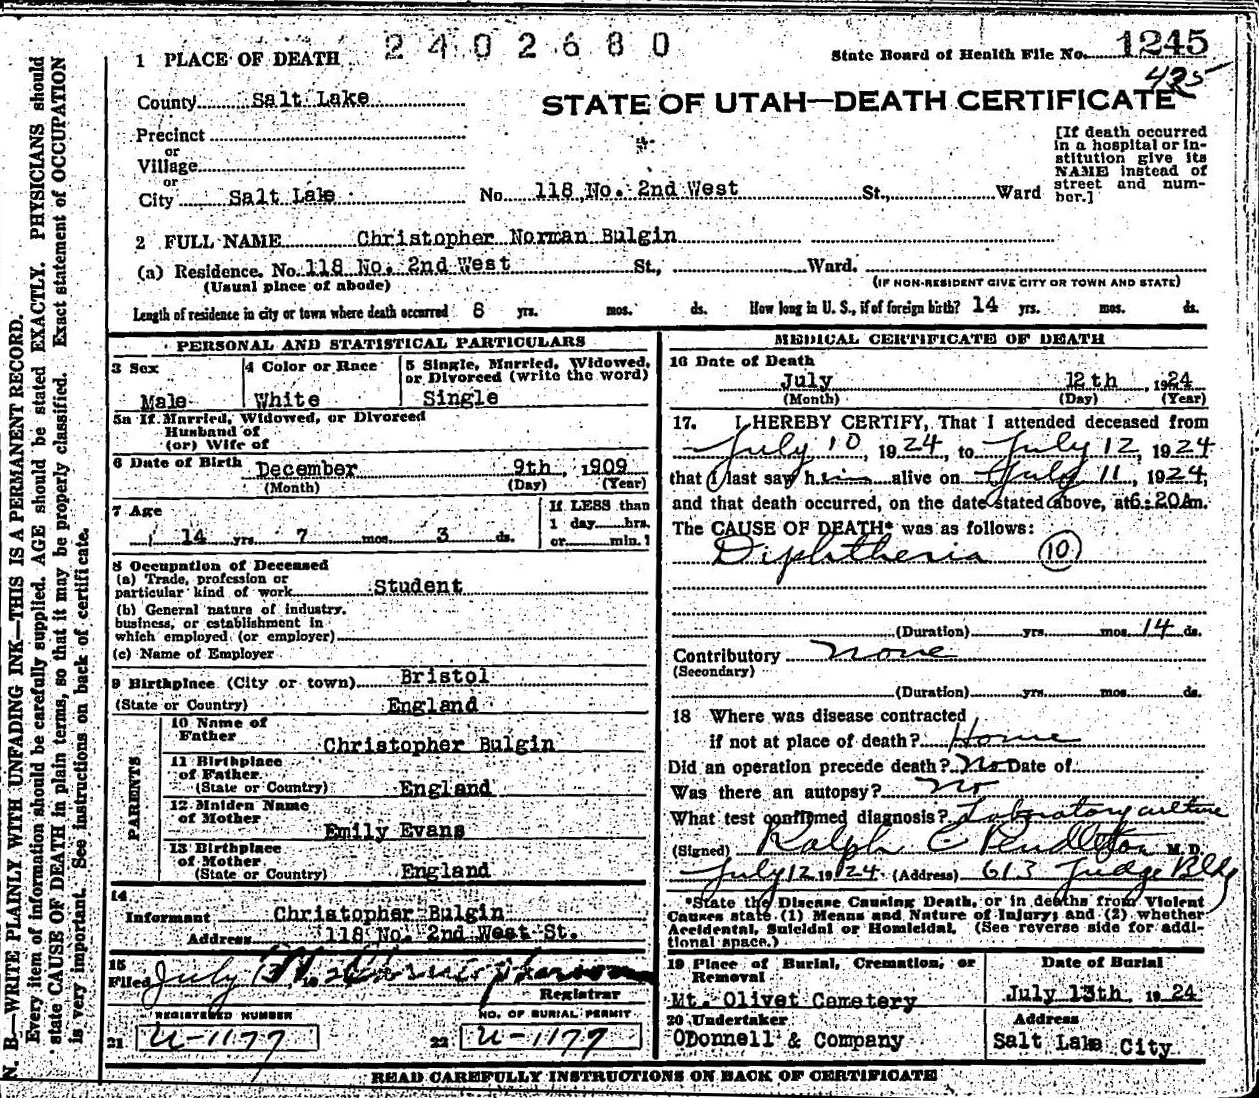 2402680
State Board of Health File No. 1245
425
1 PLACE OF DEATH
County Salt Lake
STATE OF UTAH—DEATH CERTIFICATE
Precinct
or
Village
or
City Salt Lake No. 118 No. 2nd West St., Ward
[If death occurred
in a hospital or in-
stitution give its
NAME instead of
street and num-
ber.]
2 FULL NAME Christopher Norman Bulgin
(a) Residence. No. 118 No. 2nd West St., Ward.
(Usual place of abode) (IF NON-RESIDENT GIVE CITY OR TOWN AND STATE)
Length of residence in city or town where death occurred 8 yrs. mos. ds. How long in U. S., if of foreign birth? 14 yrs. mos. ds.
PERSONAL AND STATISTICAL PARTICULARS
3 Sex 4 Color or Race 5 Single, Married, Widowed,
or Divorced (write the word)
Male White Single
5a If Married, Widowed, or Divorced
Husband of
(or) Wife of
6 Date of Birth December 9th, 1909
(Month) (Day) (Year)
7 Age If LESS than
1 day hrs.
14 yrs. 7 mos. 3 ds. or min.
8 Occupation of Deceased
(a) Trade, profession or
particular kind of work Student
(b) General nature of industry,
business, or establishment in
which employed (or employer)
(c) Name of Employer
9 Birthplace (City or town) Bristol
(State or Country) England
PARENTS
10 Name of
Father Christopher Bulgin
11 Birthplace
of Father
(State or Country) England
12 Maiden Name
of Mother Emily Evans
13 Birthplace
of Mother
(State or Country) England
14
Informant Christopher Bulgin
Address 118 No. 2nd West St.
15
Filed July
Registrar
REGISTERED NUMBER NO. OF BURIAL PERMIT
21 U-1177 22 U-1177
MEDICAL CERTIFICATE OF DEATH
16 Date of Death
July 12th, 1924
(Month) (Day) (Year)
17. I HEREBY CERTIFY, That I attended deceased from
July 10, 1924, to July 12, 1924
that I last saw him alive on July 11, 1924,
and that death occurred, on the date stated above, at 6:20 A m.
The CAUSE OF DEATH* was as follows:
Diphtheria (10)
(Duration) yrs. mos. 14 ds.
Contributory None
(Secondary)
(Duration) yrs. mos. ds.
18 Where was disease contracted
if not at place of death? Home
Did an operation precede death? No Date of
Was there an autopsy? No
What test confirmed diagnosis? Laboratory culture
(Signed) Ralph C Pendleton M. D.
July 12 1924 (Address) 613 Judge Bldg
*State the Disease Causing Death, or in deaths from Violent
Causes state (1) Means and Nature of Injury; and (2) whether
Accidental, Suicidal or Homicidal. (See reverse side for addi-
tional space.)
19 Place of Burial, Cremation, or
Removal
Mt. Olivet Cemetery
Date of Burial
July 13th, 1924
20 Undertaker
ODonnell & Company
Address
Salt Lake City
READ CAREFULLY INSTRUCTIONS ON BACK OF CERTIFICATE
N. B.—WRITE PLAINLY WITH UNFADING INK—THIS IS A PERMANENT RECORD.
Every item of information should be carefully supplied. AGE should be stated EXACTLY. PHYSICIANS should
state CAUSE OF DEATH in plain terms, so that it may be properly classified. Exact statement of OCCUPATION
is very important. See instructions on back of certificate.